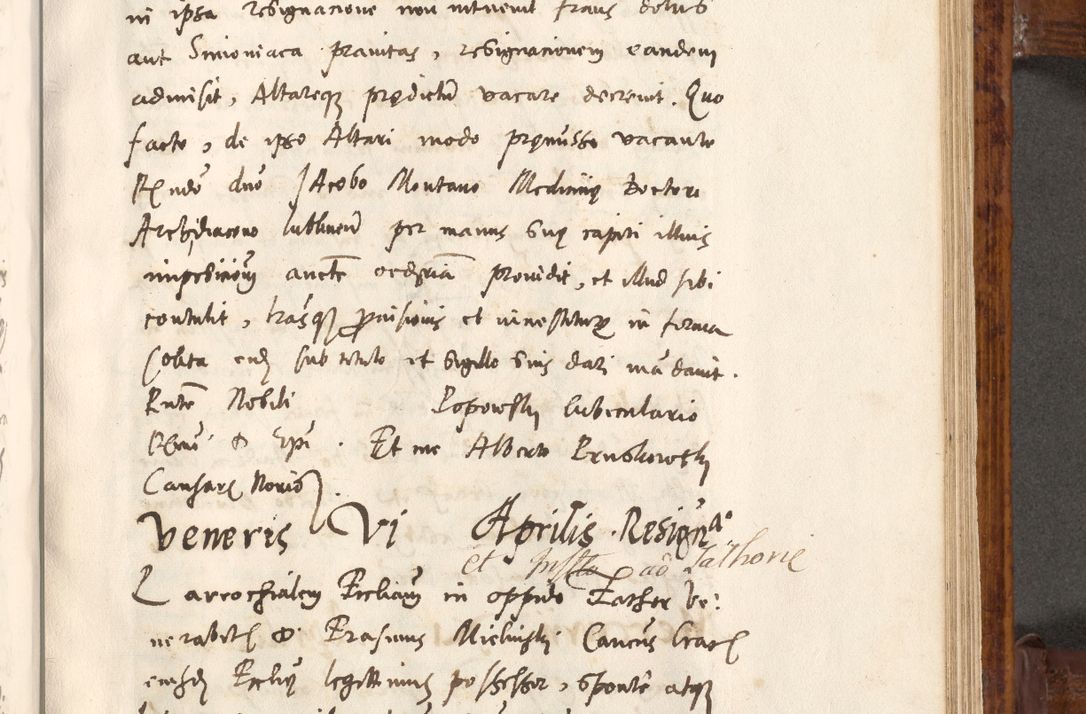 in ipsa resignacione non intuenit fraus dolus
aut Simoniaca prauitas, resignacionem eandem
admisit, Altareqz prędictū vacare decreuit. Quo
facto, de ipso Altari modo pręmisso vacante
Rñdo dño Jacobo Montano Medicinę Doctori
Archidiacono lublineñ per manus suę capiti illius
imposicioñ aucte ordñria prouidit, et illud sibi
contulit, lrasqz prouisionis et inuestiturę in forma
solita eidẽ sub titulo et sigillo suis dari mãdauit.
Pñte Nobili Popowski Cubiculario
Rmi D. Epi. Et me Alberto Pruskowski
Causarũ Norio.
Veneris Vi Aprilis. Resigna°
et ad Rathorie
Parrochialem Eccliam in oppido Rathor ve:
nerabilis D. Erasmus Mielinski Canõcus Cracẽ
eiusdẽ Ecclię legittimus possessor, sponte atqz